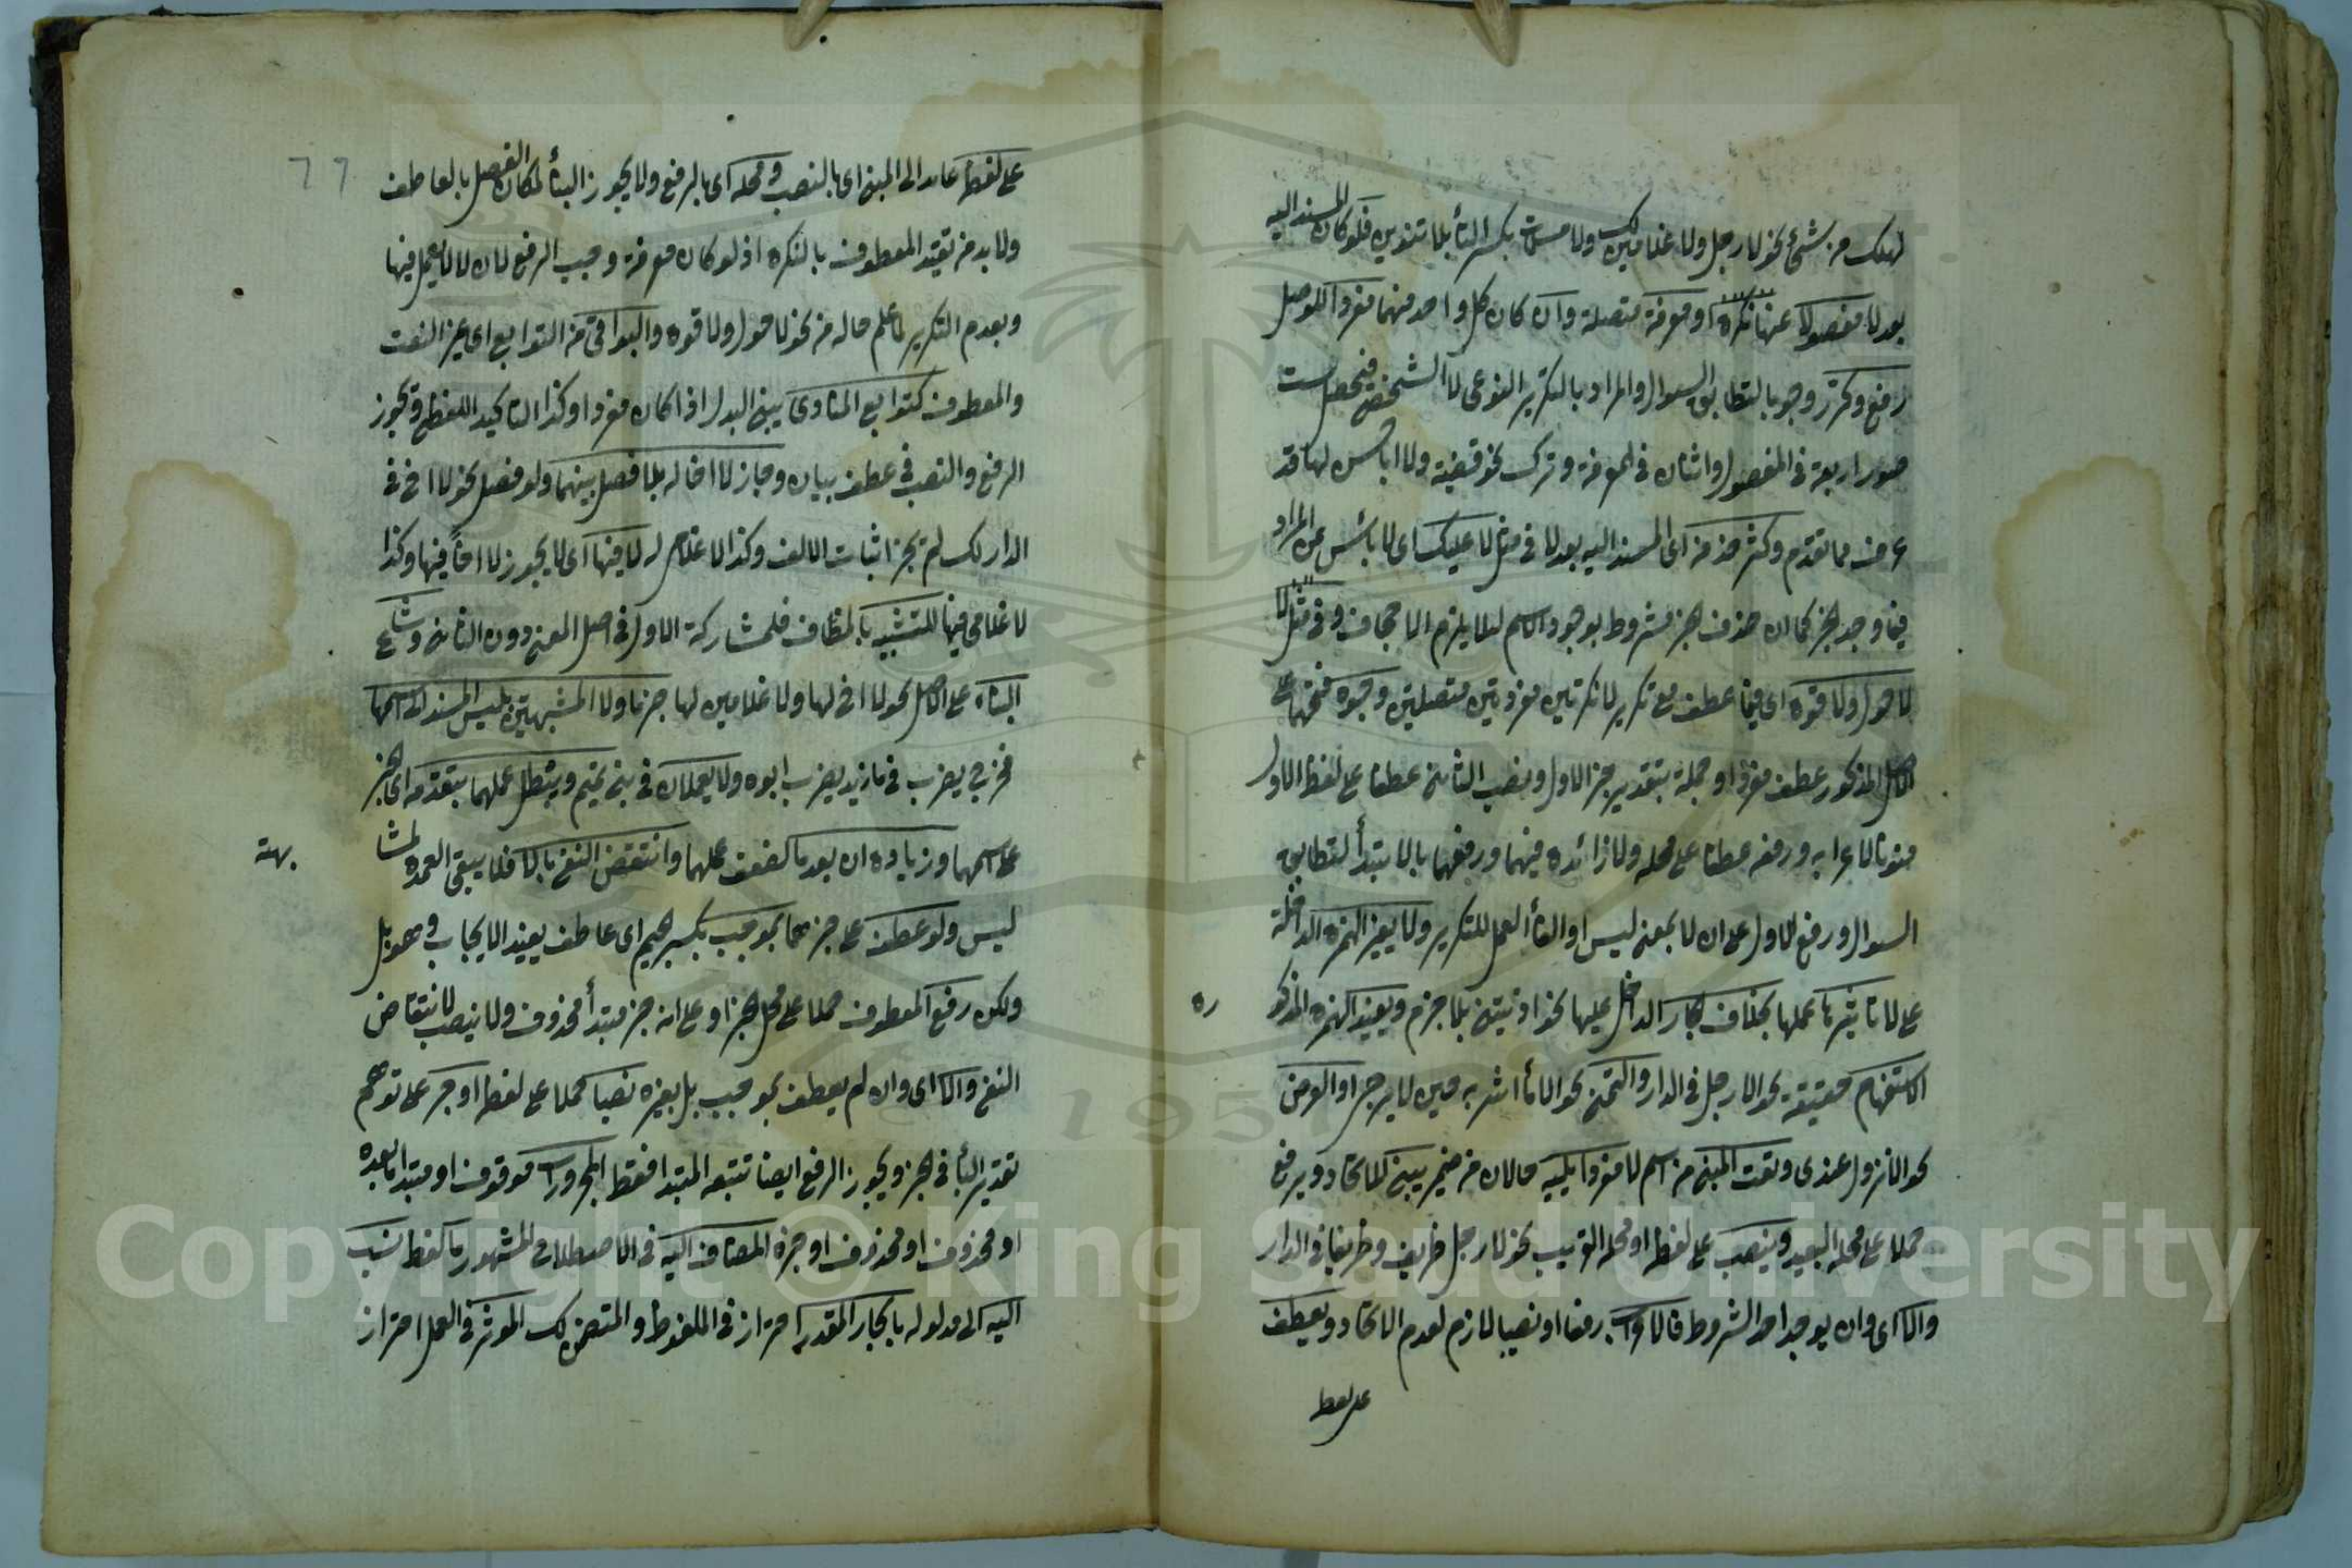 لهلك من شئ نحو لا رجل ولا غلامين لك ولا مسلمات بكسر التأ بلا تنوين فلو كان المسند اليه
بعد لا مفصولا عنها نكرة او معرفة متصلة وان كان كل واحد منهما مفردا للوصل
رفع وكرر وجوبا لتطابق السوال والمراد بالتكرير النوعى لا الشخصى فتحصلت
صور اربعة فى المفصول واثنان فى المعرفة وترك نحو قضية ولا ابا حسن لها قد
عرف مما تقدم وكثر حذفه اى المسند اليه بعد لا فى مثل لا عليك اى لا بأس عن المراد
فيما وجد الخبر كما ان حذف الخبر مشروط بوجود الاسم لئلا يلزم الاجحاف وفى مثل لا
لا حول ولا قوة اى فيما عطف مع تكرير لا نكرتين مفردتين متصلتين وجوه فتحهما على
الاصل المذكور عطف مفرد او جملة بتقدير خبر الاول ونصب الثانى عطفا على لفظ الاول
منونا لاعرابه ورفعه عطفا على محله ولا زائدة فيهما ورفعهما بالابتدأ لتطابق
السوال ورفع الاول على ان لا بمعنى ليس او الغأ العمل للتكرير ولا يغير الهمزة الداخلة
على لا تأثيرها عملها بخلاف الجار الداخل عليها نحو اذيتنى بلا جرم ويفيد الهمزة المذكو
ره
الاستفهام حقيقة نحو الا رجل فى الدار والتمنى نحو الا مأ اشربه حين لا يرجى او العرض
نحو الا نزول عندى ونعت المبنى من اسم لا مفردا يليه حالان من ضمير يبنى للاتحاد ويرفع
حملا على محله البعيد وينصب على لفظه او محله القريب نحو لا رجل ظريف وظريفا فى الدار
والا اى وان لم يوجد احد الشروط فالاعراب رفعا او نصبا لازم لعدم الاتحاد ويعطف
على لفظ
٦٦
على لفظه عائد الى المبنى اى بالنصب ومحله اى بالرفع ولا يجوز البنأ لمكان الفصل بالعاطف
ولا بد من تقييد المعطوف بالنكره اذ لو كان معرفة وجب الرفع لان لا لا يعمل فيها
وبعدم التكرير لما علم حاله من نحو لا حول ولا قوه والبواقى من التوابع اى غير النعت
والمعطوف كتوابع المنادى يبنى البدل اذا كان مفردا وكذا التاكيد اللفظى ويجوز
الرفع والنصب فى عطف بيان وجاز لا اخا له بلا فصل بينهما ولو فصل نحو لا اخ فى
الدار لك لم يجز اثبات الالف وكذا لا غلامى له لا فيها اى لا يجوز لا اخا فيها وكذا
لا غلامى فيها للتشبيه بالمضاف فلمشاركة الاول فى اصل المعنى دون الثانى وشاع
البناء على الاصل نحو لا اخ لها ولا غلامين لها خبر ما ولا المشبهتين بليس المسند الى اسمها
فخرج يضرب فى ما زيد يضرب ابوه ولا يعملان فى بنى تميم ويبطل عملهما بتقدمه اى الخبر
على اسمها وزيادة ان بعد ما لضعف عملها وانتقض النفى بالا فلا يبقى العمده لمشا
بهته
ليس ولو عطف على خبرهما بموجب بكسر الجيم اى عاطف يفيد الايجاب وهو بل
ولكن رفع المعطوف حملا على محل الخبر او على انه خبر مبتدأ محذوف ولا ينصب لانتقاض
النفى والا اى وان لم يعطف بموجب بل بغيره نصبا حملا على لفظه او جر على توهم
تقدير البأ فى الخبر ويجوز الرفع ايضا تتبعه المبتدا فقط المجرورات موقوف او مبتدا ما بعده
او محذوف او محذوف او خبره المضاف اليه فى الاصطلاح المشهور ما لفظ نسب
اليه الى مدلوله بالجار المقدر احتراز فى الملفوظ والمتضمن لك المؤثر فى العمل احتراز
Copyright © King Saud University
1957